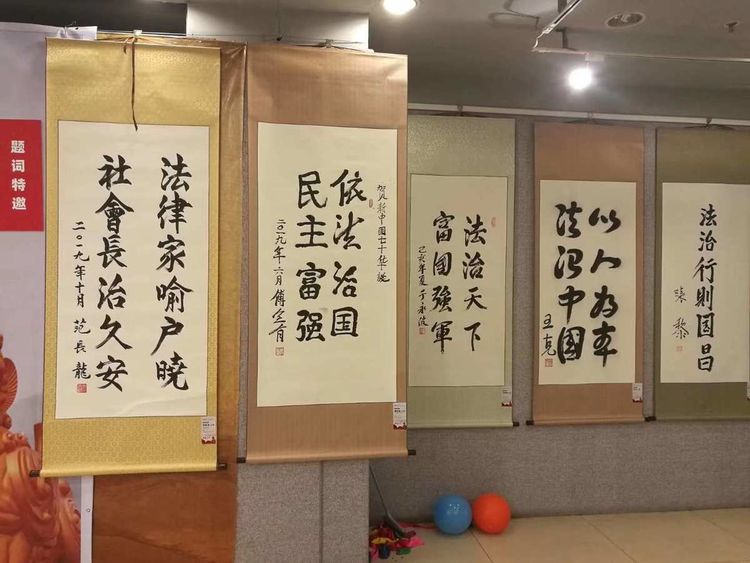 题词特邀
法律家喻户晓
社會長治久安
二〇一九年十月 范長龍
新中国七十华诞
依法治国
民主富强
二〇一九年六月 傅全有
法治天下
富国強軍
己亥年夏 于永波
以人为本
法治中國
王克
法治行则国昌
张黎